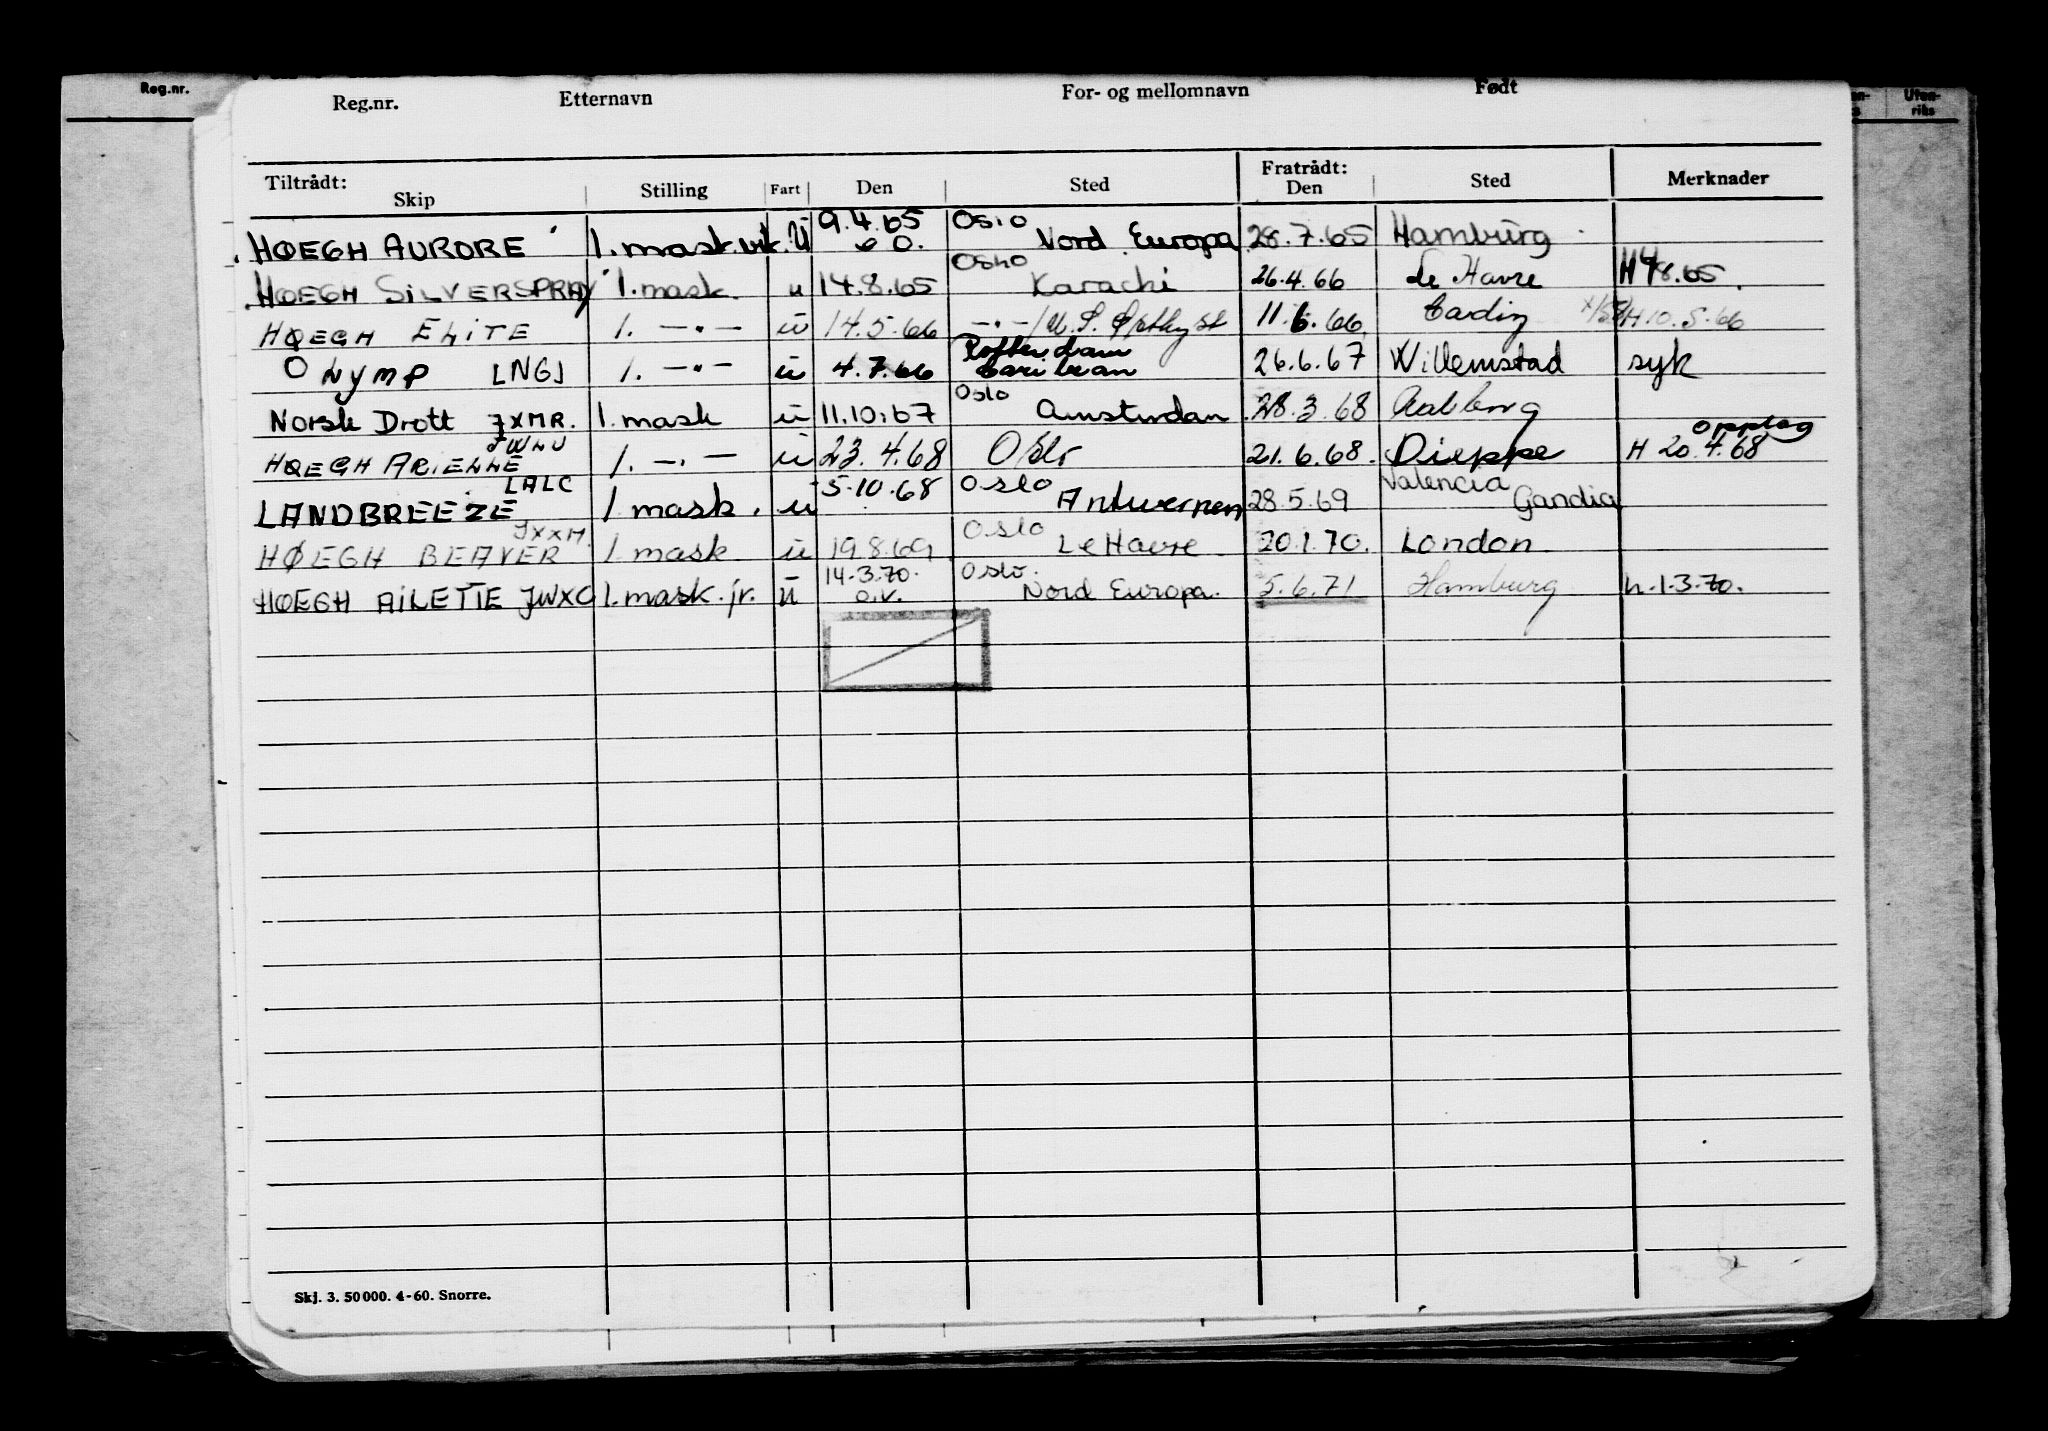 Reg.nr.
Reg.nr. Etternavn For- og mellomnavn Født
Uten-
riks
Tiltrådt: Fratrådt:
Skip Stilling Fart Den Sted Den Sted Merknader
HØEGH AURORE 1. mask.vik. ü 9.4.65 Oslo Nord Europa 28.7.65 Hamburg
HØEGH SILVERSPRAY 1. mask. u 14.8.65 Oslo Karachi 26.4.66 Le Havre H 8.65.
HØEGH ELITE 1. —"— ü 14.5.66 —"— 11.6.66 H 10.5.66
OLYMP LNGJ 1. —"— ü 4.7.66 Rotterdam Caribean 26.6.67 Willemstad syk
Norsk Drott JXMR. 1. mask ü 11.10.67 Oslo Amsterdam 28.3.68 Aalborg
HØEGH ARIELLE JWLU 1. —.— ü 23.4.68 Oslo 21.6.68. Dieppe H 20.4.68 opplag
LANDBREEZE LALC 1 mask. u 5.10.68 Oslo Antwerpen 28.5.69 Valencia Gandia
HØEGH BEAVER JXXM. 1. mask ü 19.8.69 Oslo Le Havre 20.1.70. London
HØEGH AILETTE JWXC 1. mask. jr. ü 14.3.70. o.v. Oslo. Nord Europa. 5.6.71 Hamburg h.1.3.70.
Skj. 3. 50 000. 4-60. Snorre.